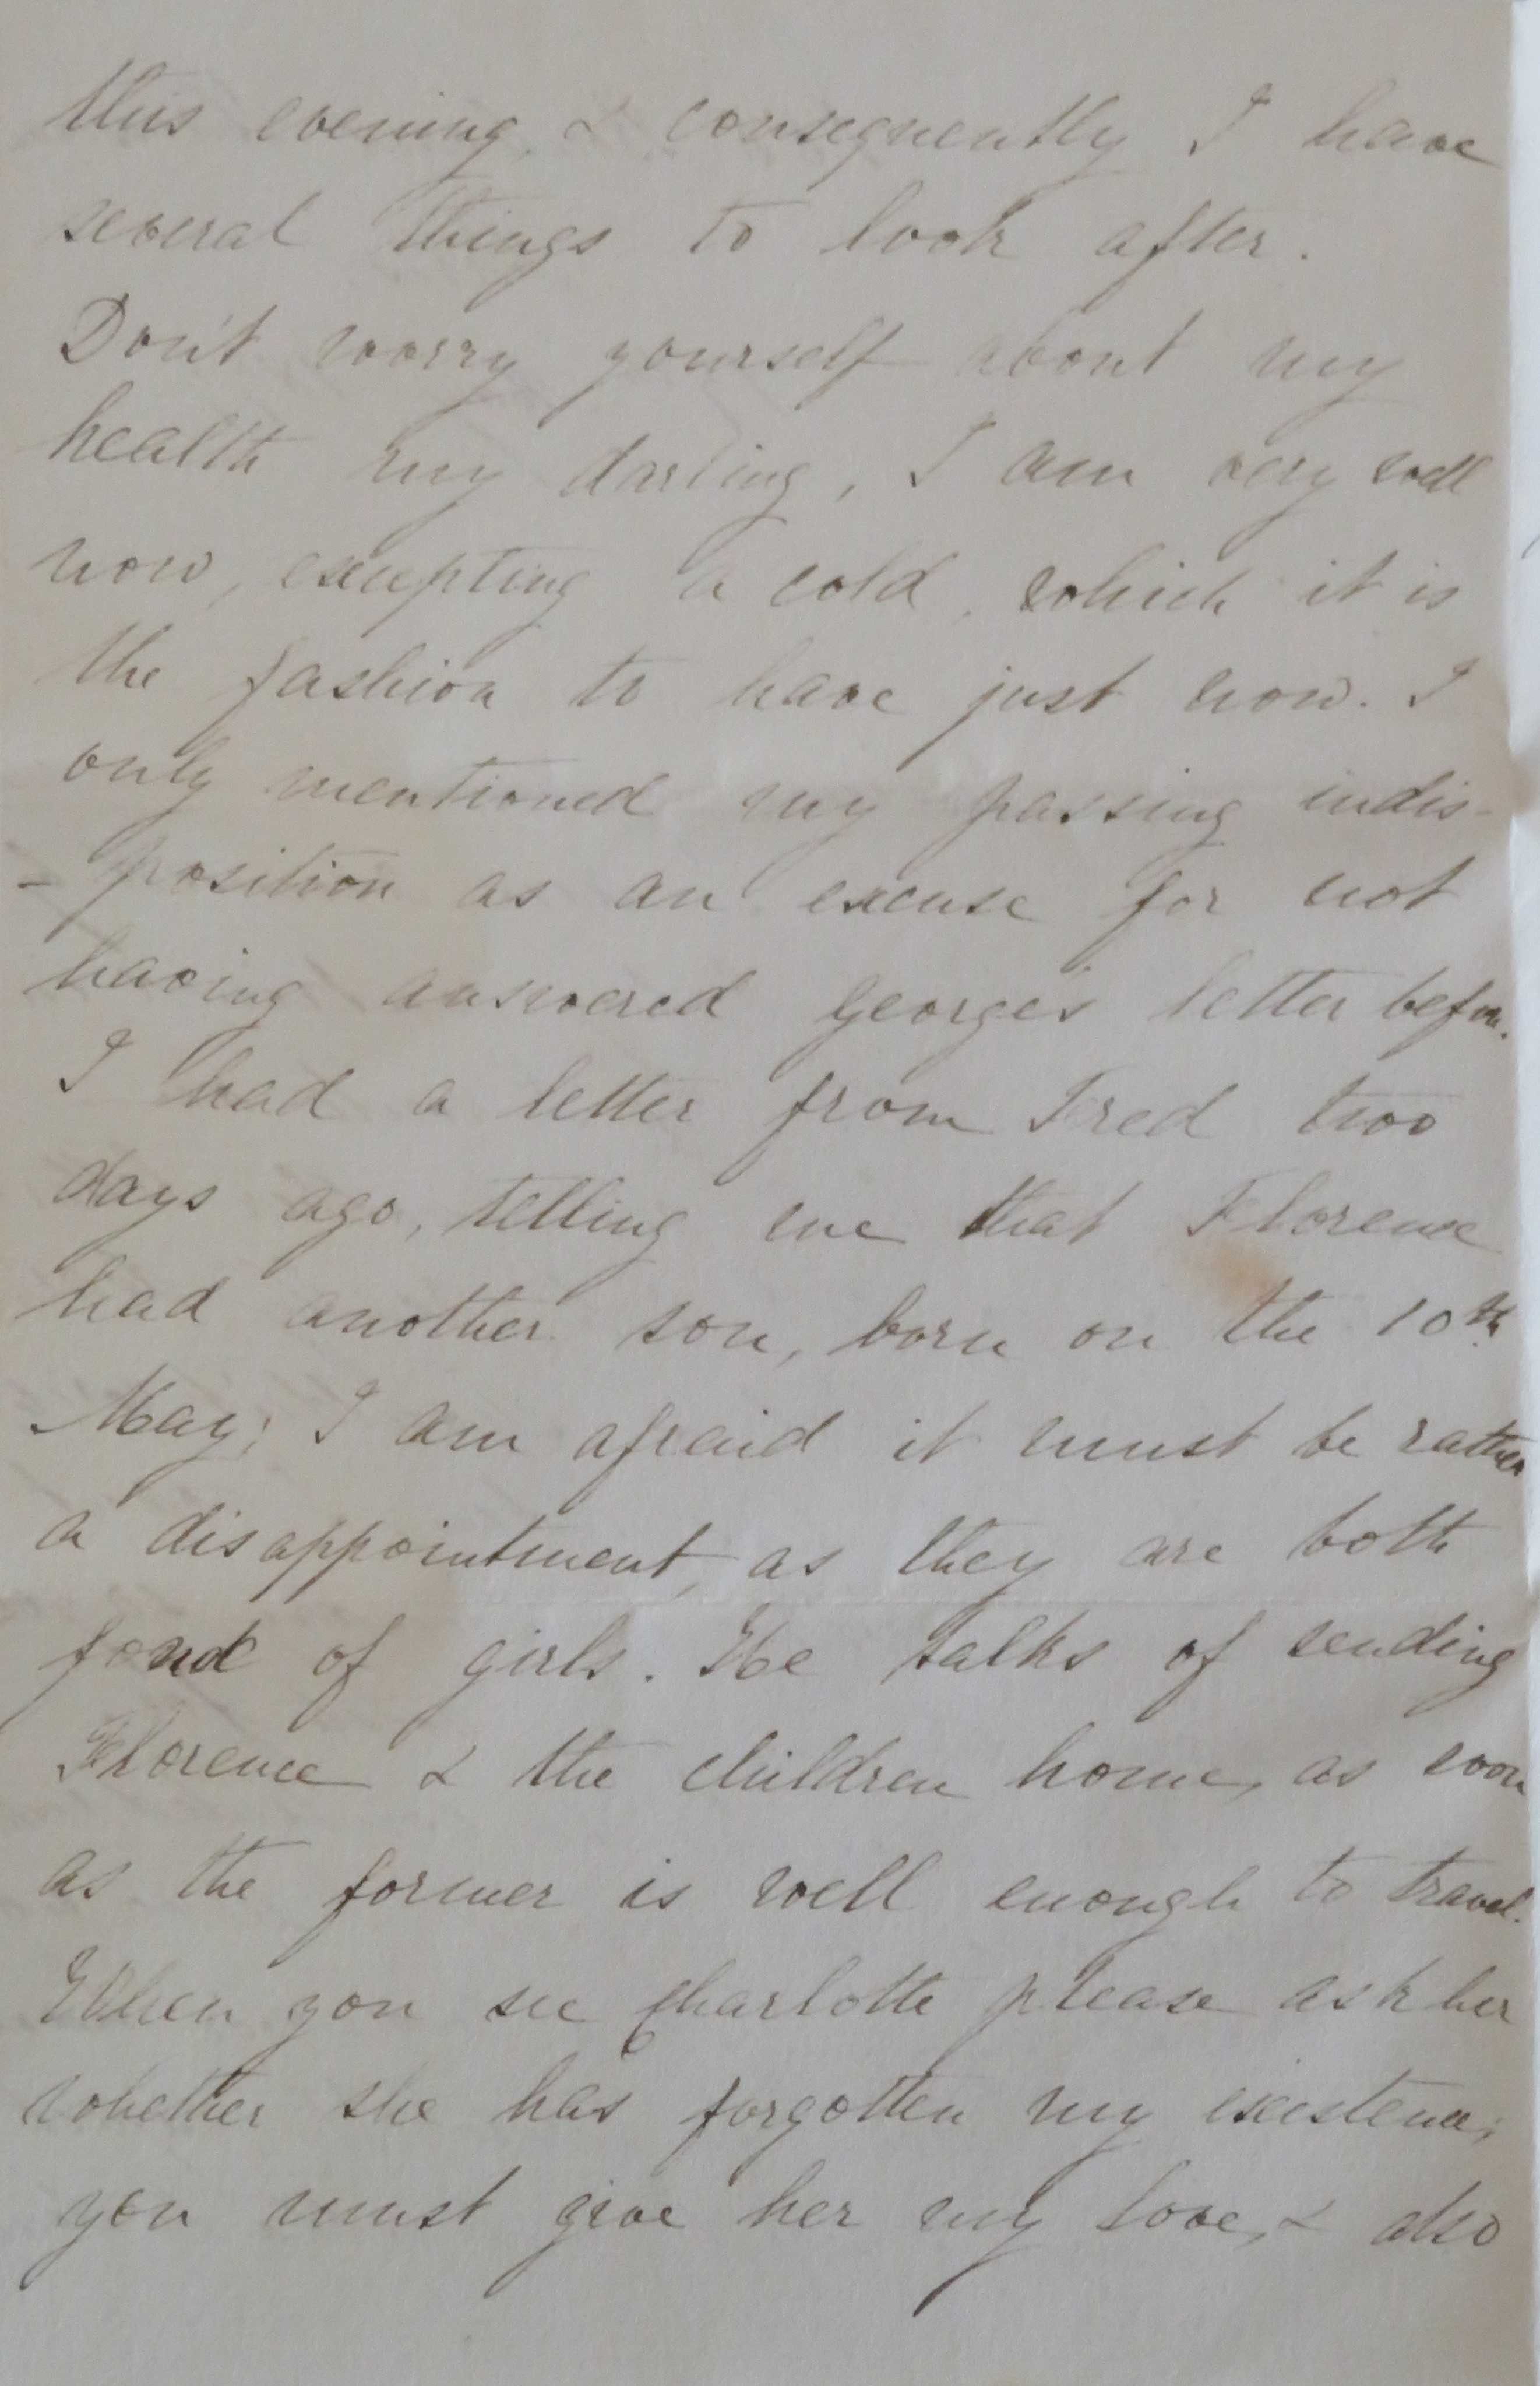 this evening, & consequently I have
several things to look after.
Don't worry yourself about my
health my darling, I am very well
now, excepting a cold, which it is
the fashion to have just now. I
only mentioned my passing indis-
- position as an excuse for not
having answered George's letter before.
I had a letter from Fred two
days ago, telling me that Florence
had another son, born on the 10th
May; I am afraid it must be rather
a disappointment, as they are both
fond of girls. He talks of sending
Florence & the children home, as soon
as the former is well enough to travel.
When you see Charlotte please ask her
whether she has forgotten my existence;
you must give her my love, & also